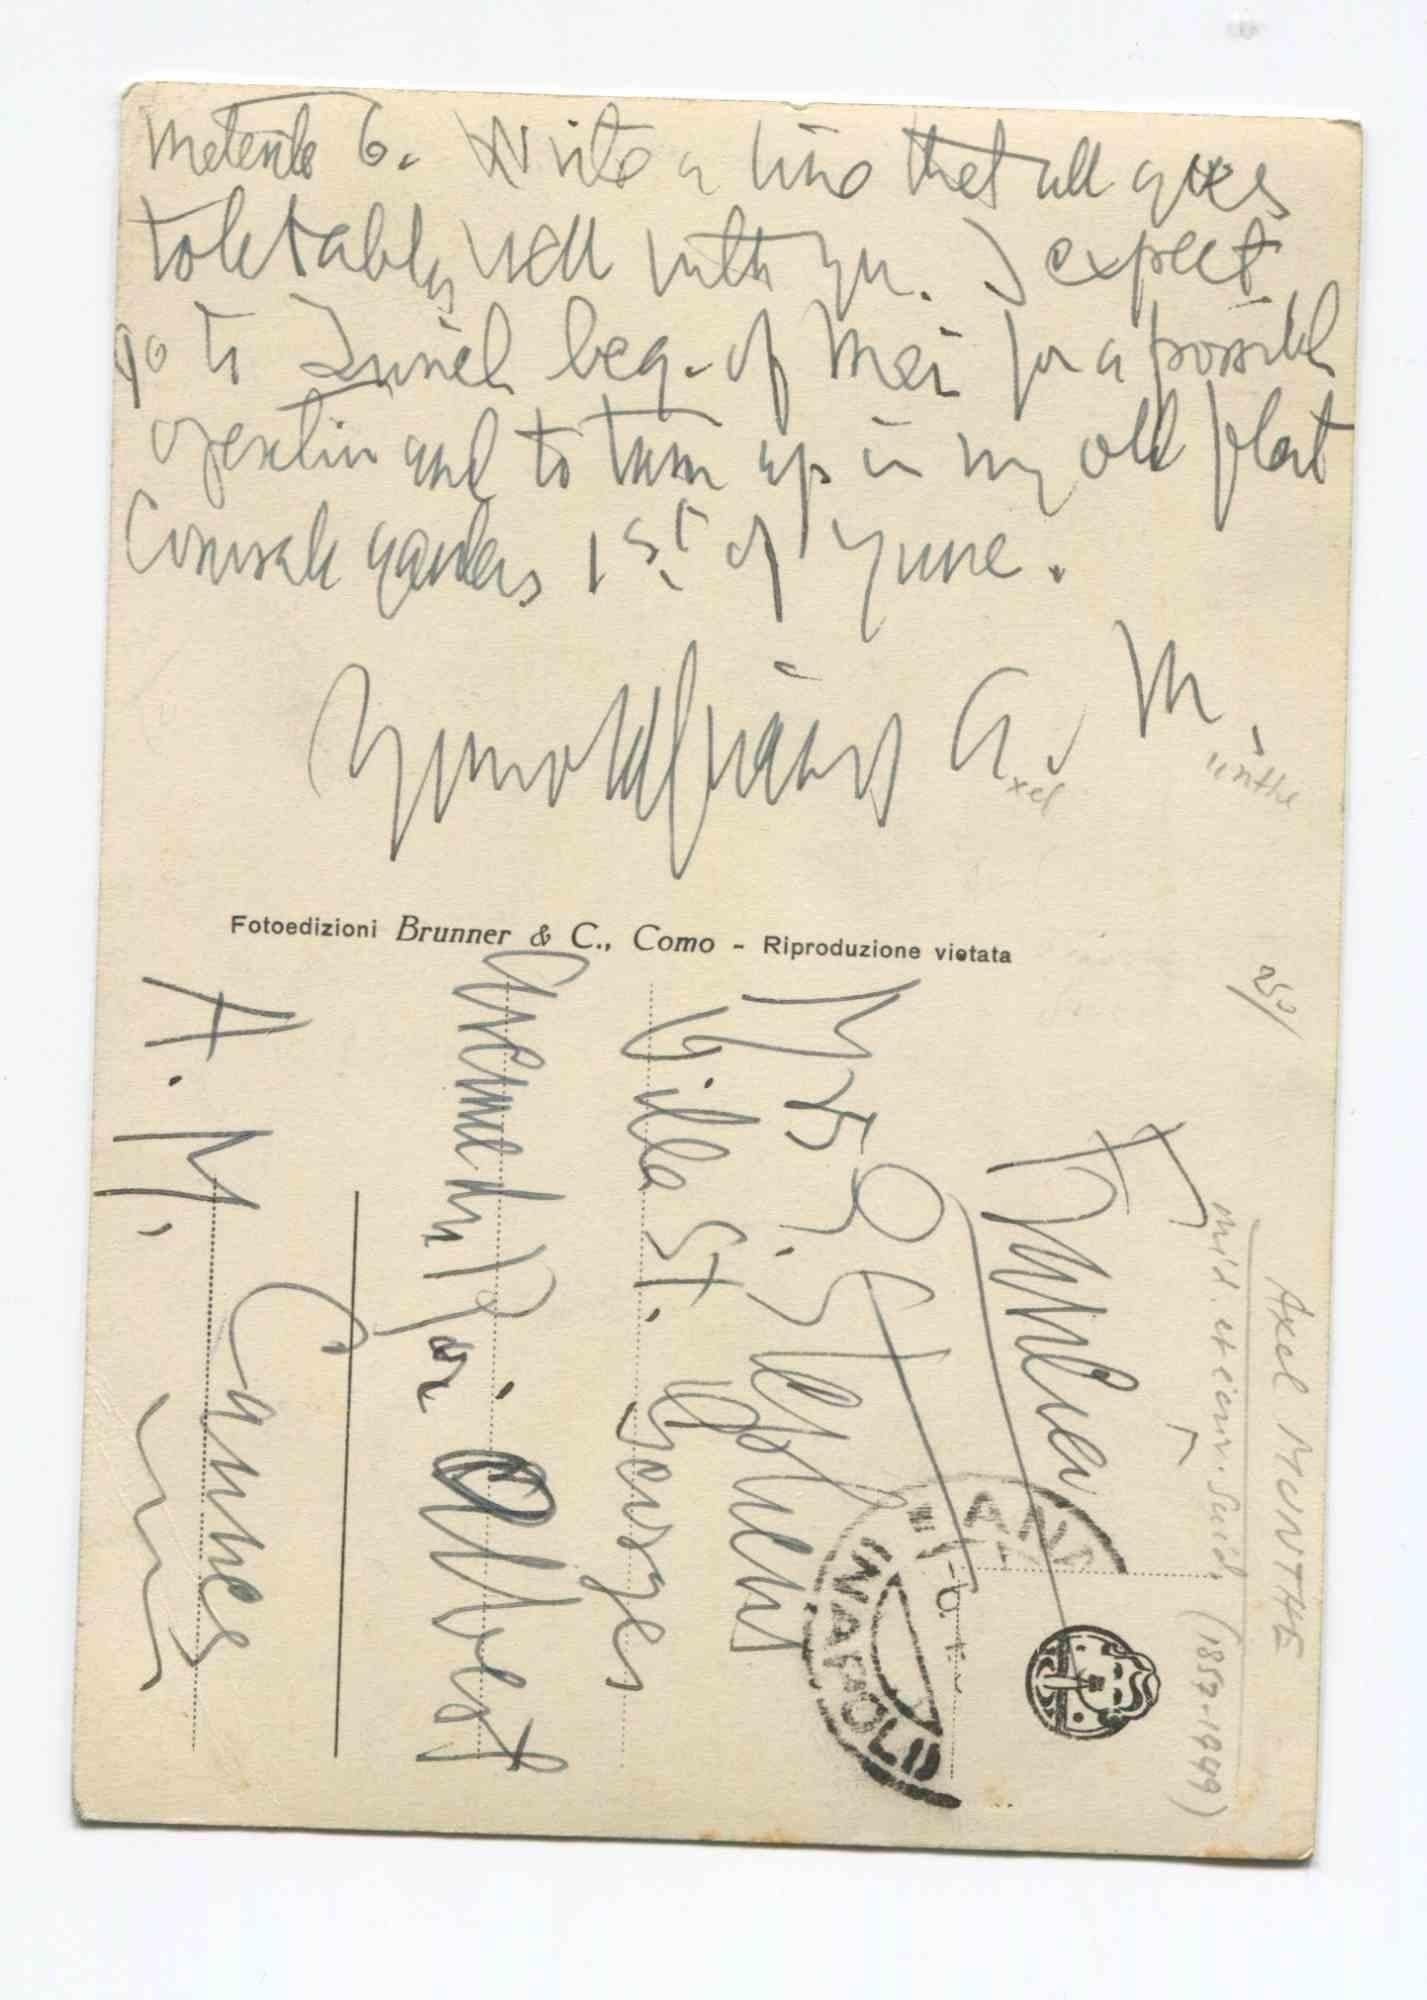 Materita 6. Write a line that all goes
tolerably well with you. I expect
go to Zurich beg. of Mai for a possible
operation and to turn up in my old flat
Cornwall gardens 1st. of Yune.
Your old friend A. M.
xel unthe
Fotoedizioni Brunner & C., Como - Riproduzione vietata
250/
Axel MUNTHE
méd. et écriv. Suéd. (1857-1949)
Mrs G. Stephens
Villa St. Georges
Avenue du Roi Albert
Cannes
A. M.
NAPOLI